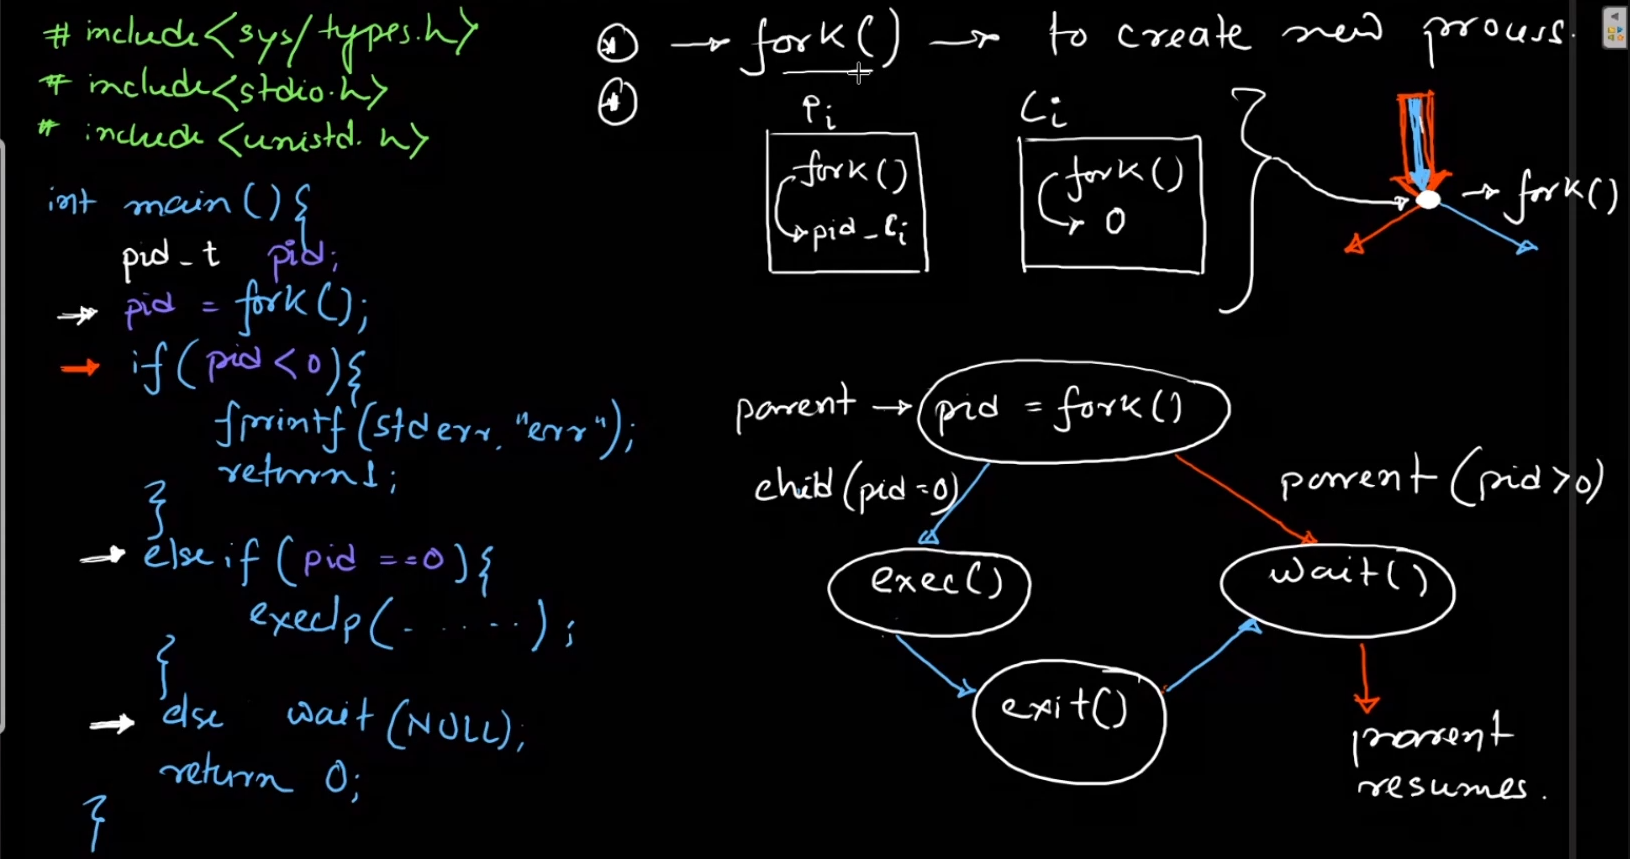 # include<sys/types.h>
# include<stdio.h>
# include<unistd.h>
int main(){
pid_t pid;
pid = fork();
if(pid<0){
fprintf(stderr, "err");
return 1;
}
else if(pid ==0){
execlp(. ......);
}
else wait(NULL);
return 0;
}
→ fork() → to create new process.
Pi
fork()
pid_Ci
Ci
fork()
0
→ fork()
parent → pid = fork()
child(pid=0)
parent (pid>0)
exec()
wait()
exit()
parent
resumes.